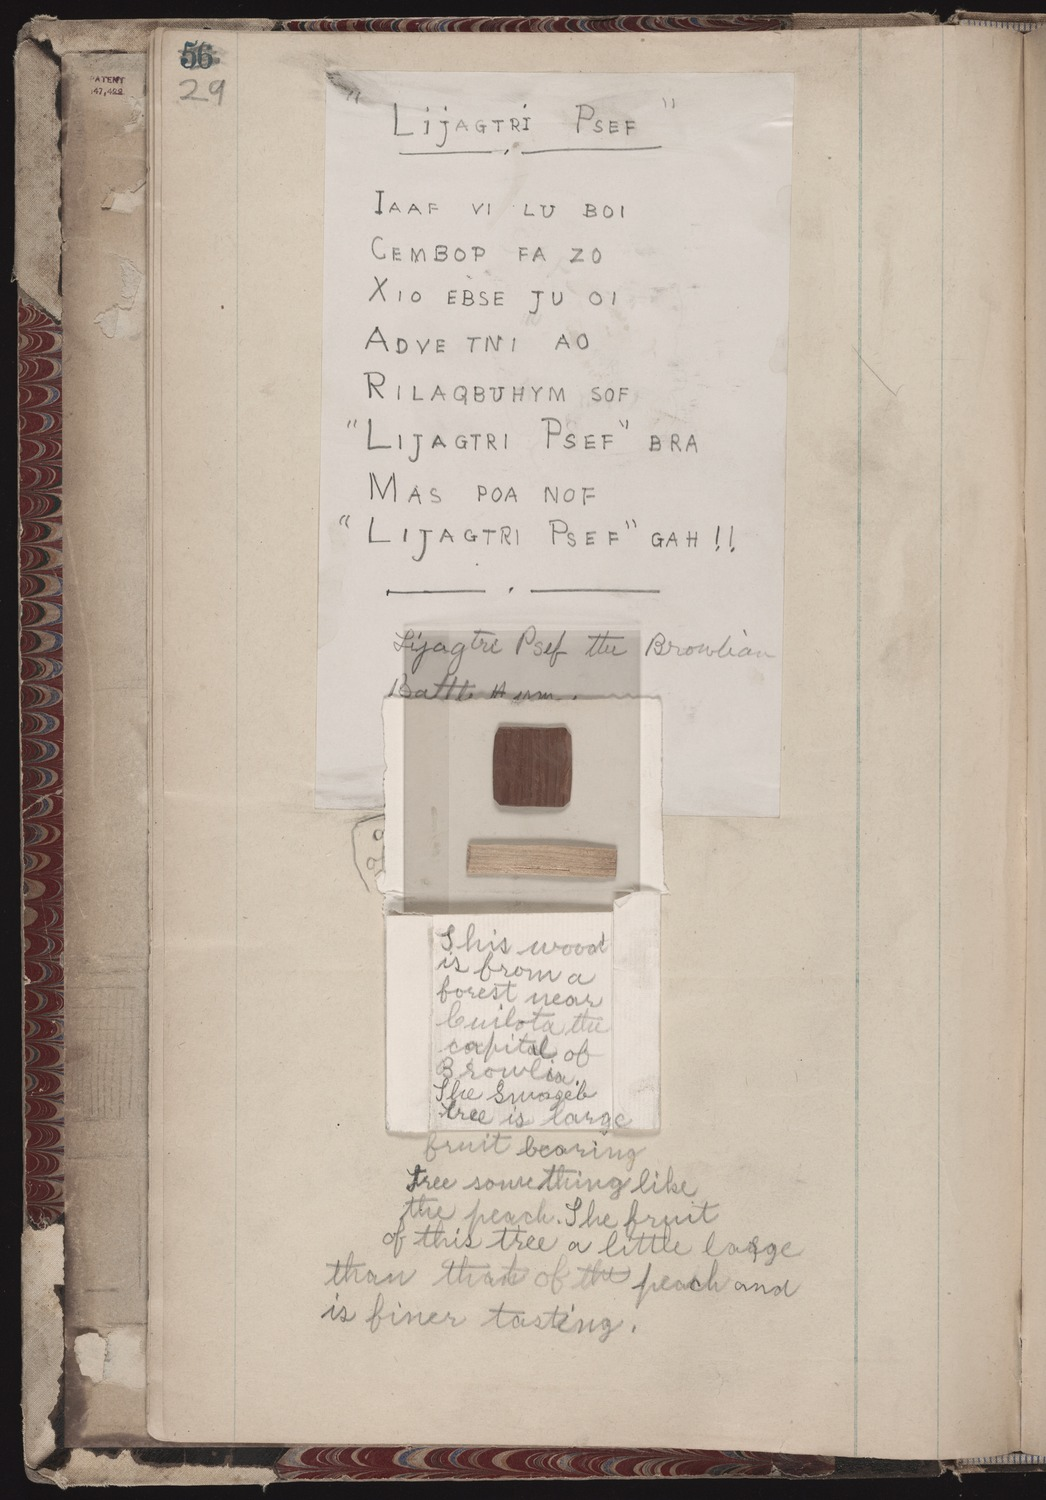 56
29
PATENT
47,422
" LIJAGTRI PSEF "
IAAF VI LU BOI
CEMBOP FA ZO
XIO EBSE JU OI
ADVE TNI AO
RILAQBUHYM SOF
"LIJAGTRI PSEF" BRA
MAS POA NOF
"LIJAGTRI PSEF" GAH!!
Lijagtri Psef the Browlian
Battle
This wood
is from a
forest near
the
capital of
Browlia.
The
tree is large
fruit bearing
tree something like
the peach. The fruit
of this tree a little large
than that of the peach and
is finer tasting.